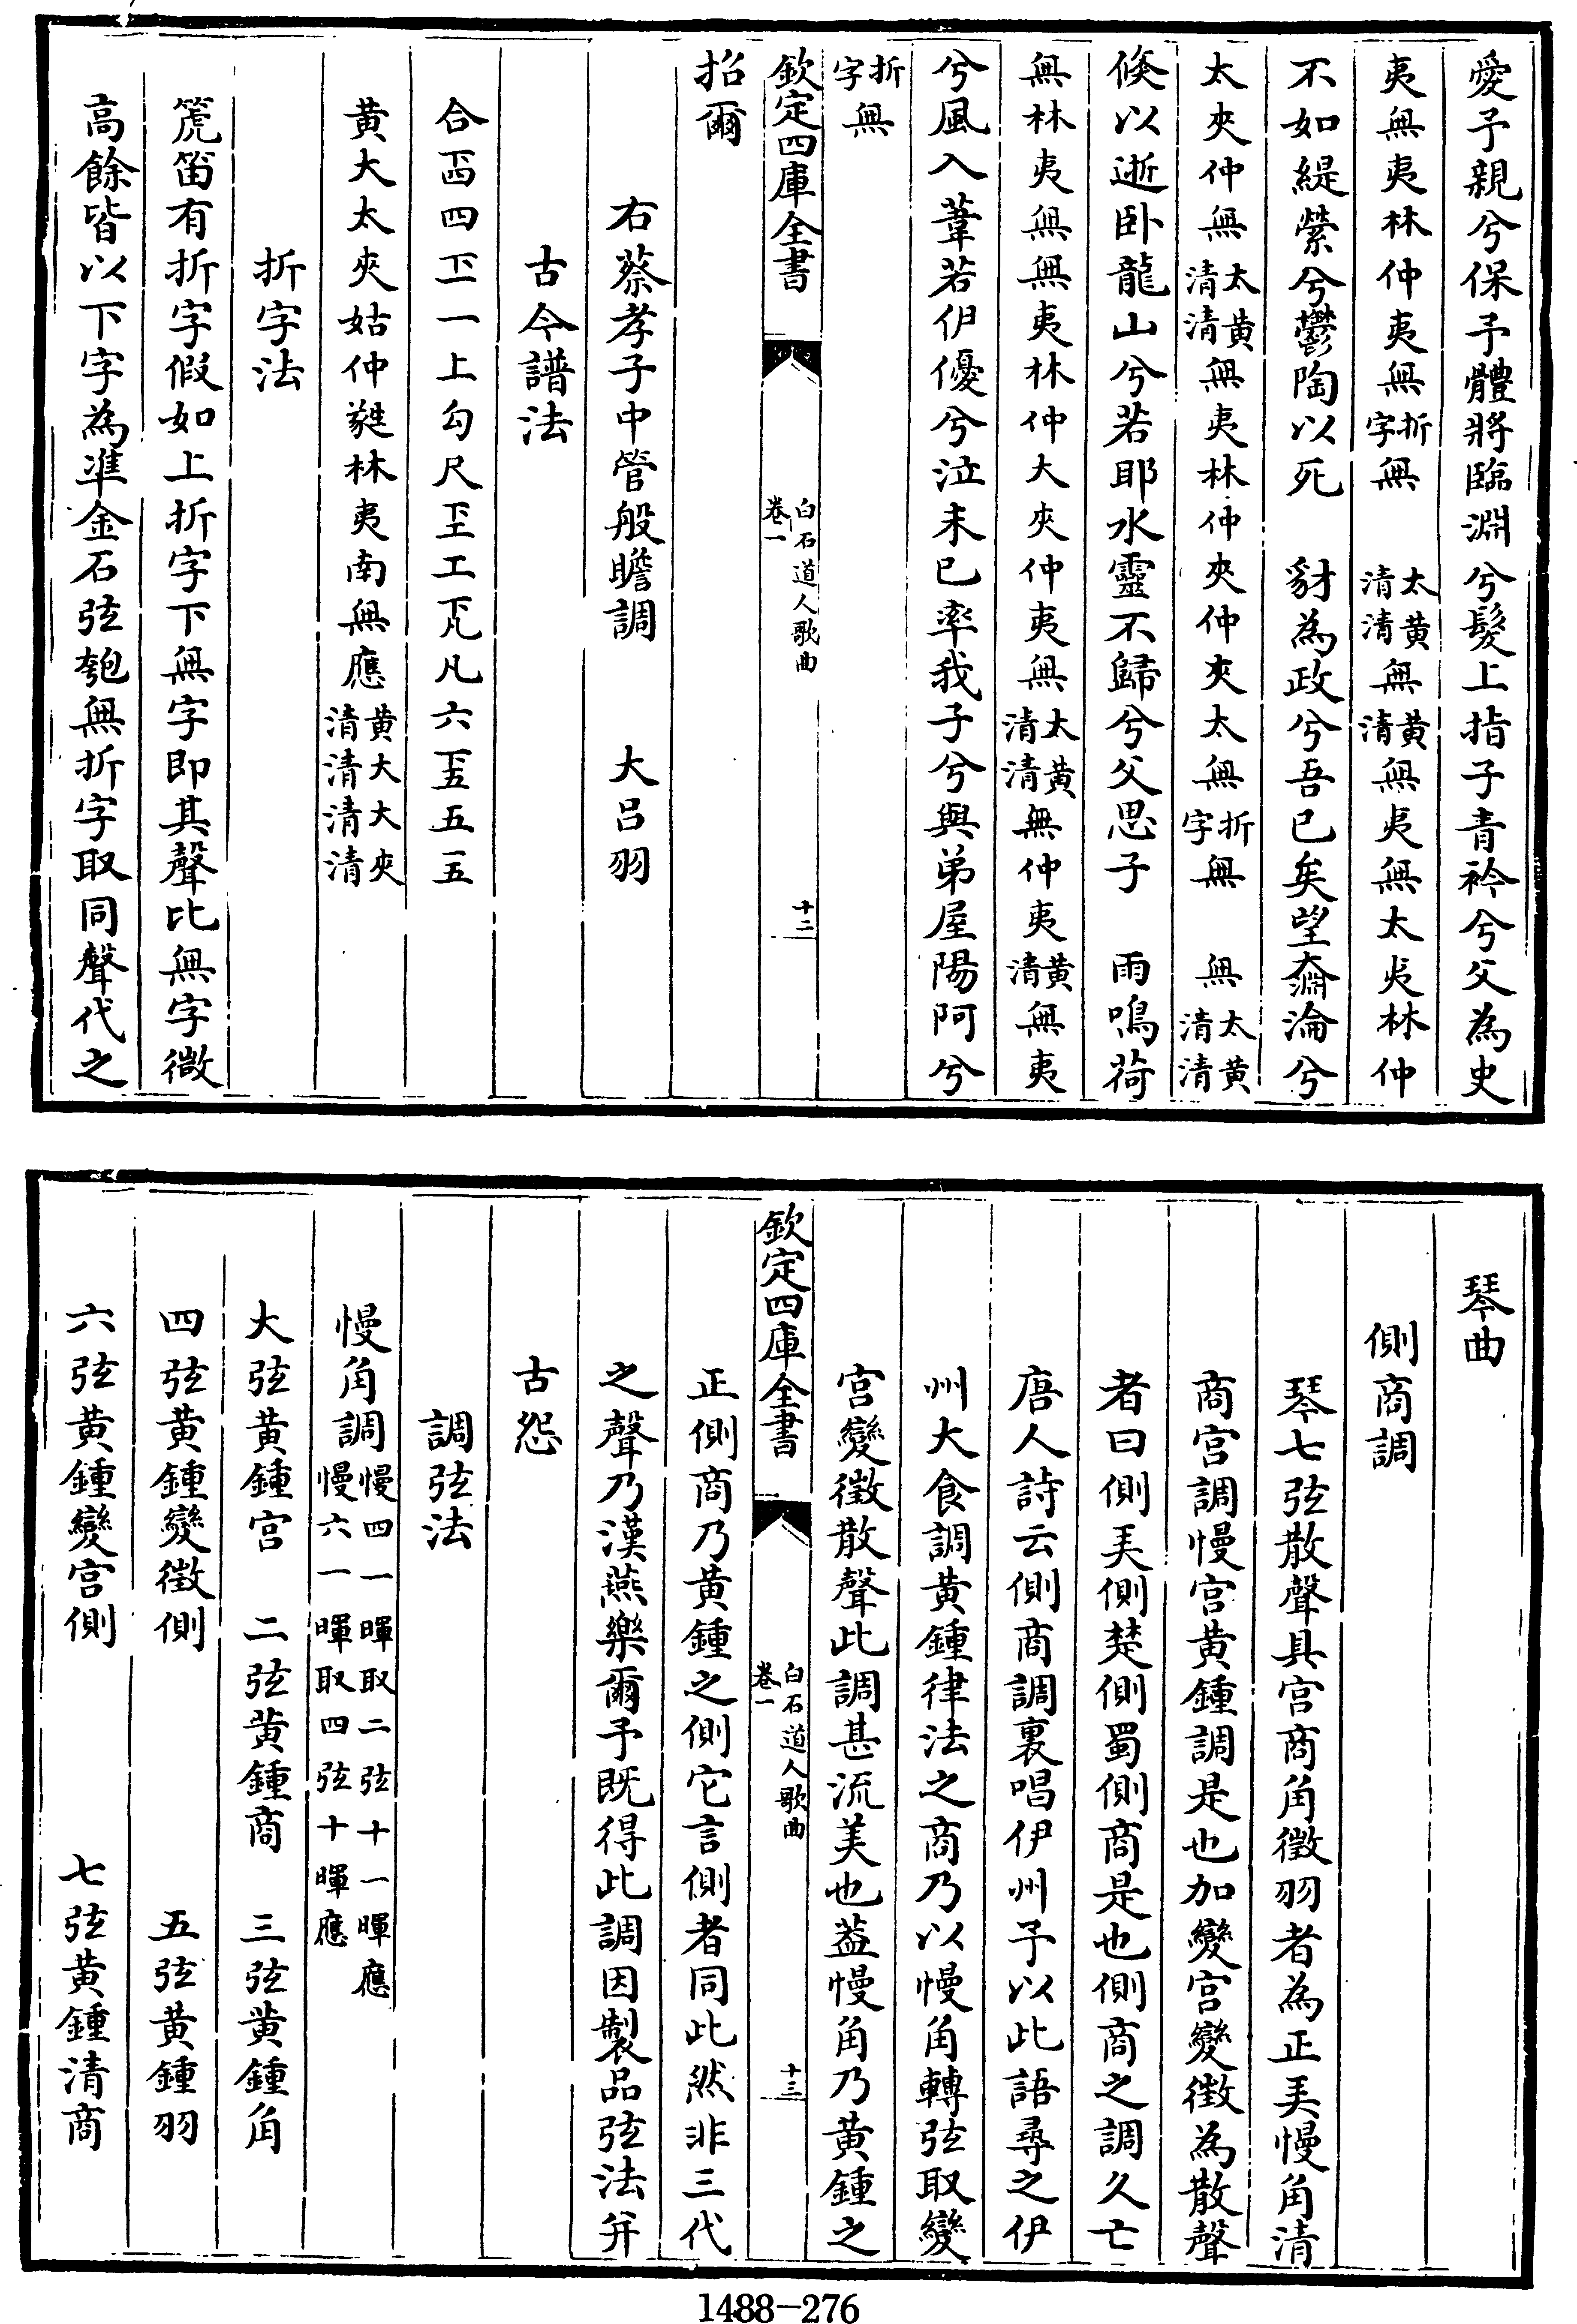 愛予親兮保予體將臨淵兮髮上指子青衿兮父為史
夷無夷林仲夷無折字無　太清黃清無黃清無夷無太夷林仲
不如緹縈兮鬱陶以死　豺為政兮吾已矣望奫淪兮
太夾仲無太清黃清無夷林仲夾仲夾太無折字無　無太清黃清
倐以逝卧龍山兮若耶水靈不歸兮父思子　雨鳴荷
無林夷無無夷林仲大夾仲夷無太清黃清無仲夷黃清無夷
兮風入葦若伊優兮泣未已率我子兮與弟屋陽阿兮
折字無
欽定四庫全書　白石道人歌曲卷一　十二
招爾
右蔡孝子中管般瞻調　大呂羽
古今譜法
合𠀇四一上勾尺工凡六五五
黃大太夾姑仲蕤林夷南無應黃清大清太清夾清
折字法
箎笛有折字假如上折字下無字即其聲比無字微
高餘皆以下字為凖金石弦匏無折字取同聲代之
琴曲
側商調
琴七弦散聲具宮商角徵羽者為正弄慢角清
商宮調慢宮黃鍾調是也加變宮變徵為散聲
者曰側弄側楚側蜀側商是也側商之調久亡
唐人詩云側商調裏唱伊州予以此語尋之伊
州大食調黃鍾律法之商乃以慢角轉弦取變
宮變徵散聲此調甚流美也葢慢角乃黃鍾之
欽定四庫全書　白石道人歌曲卷一　十三
正側商乃黃鍾之側它言側者同此然非三代
之聲乃漢燕樂爾予既得此調因製品弦法并
古怨
調弦法
慢角調慢四一暉取二弦十一暉應慢六一暉取四弦十暉應
大弦黃鍾宮　二弦黃鍾商　三弦黃鍾角
四弦黃鍾變徵側　五弦黃鍾羽
六弦黃鍾變宮側　七弦黃鍾清商
1488-276